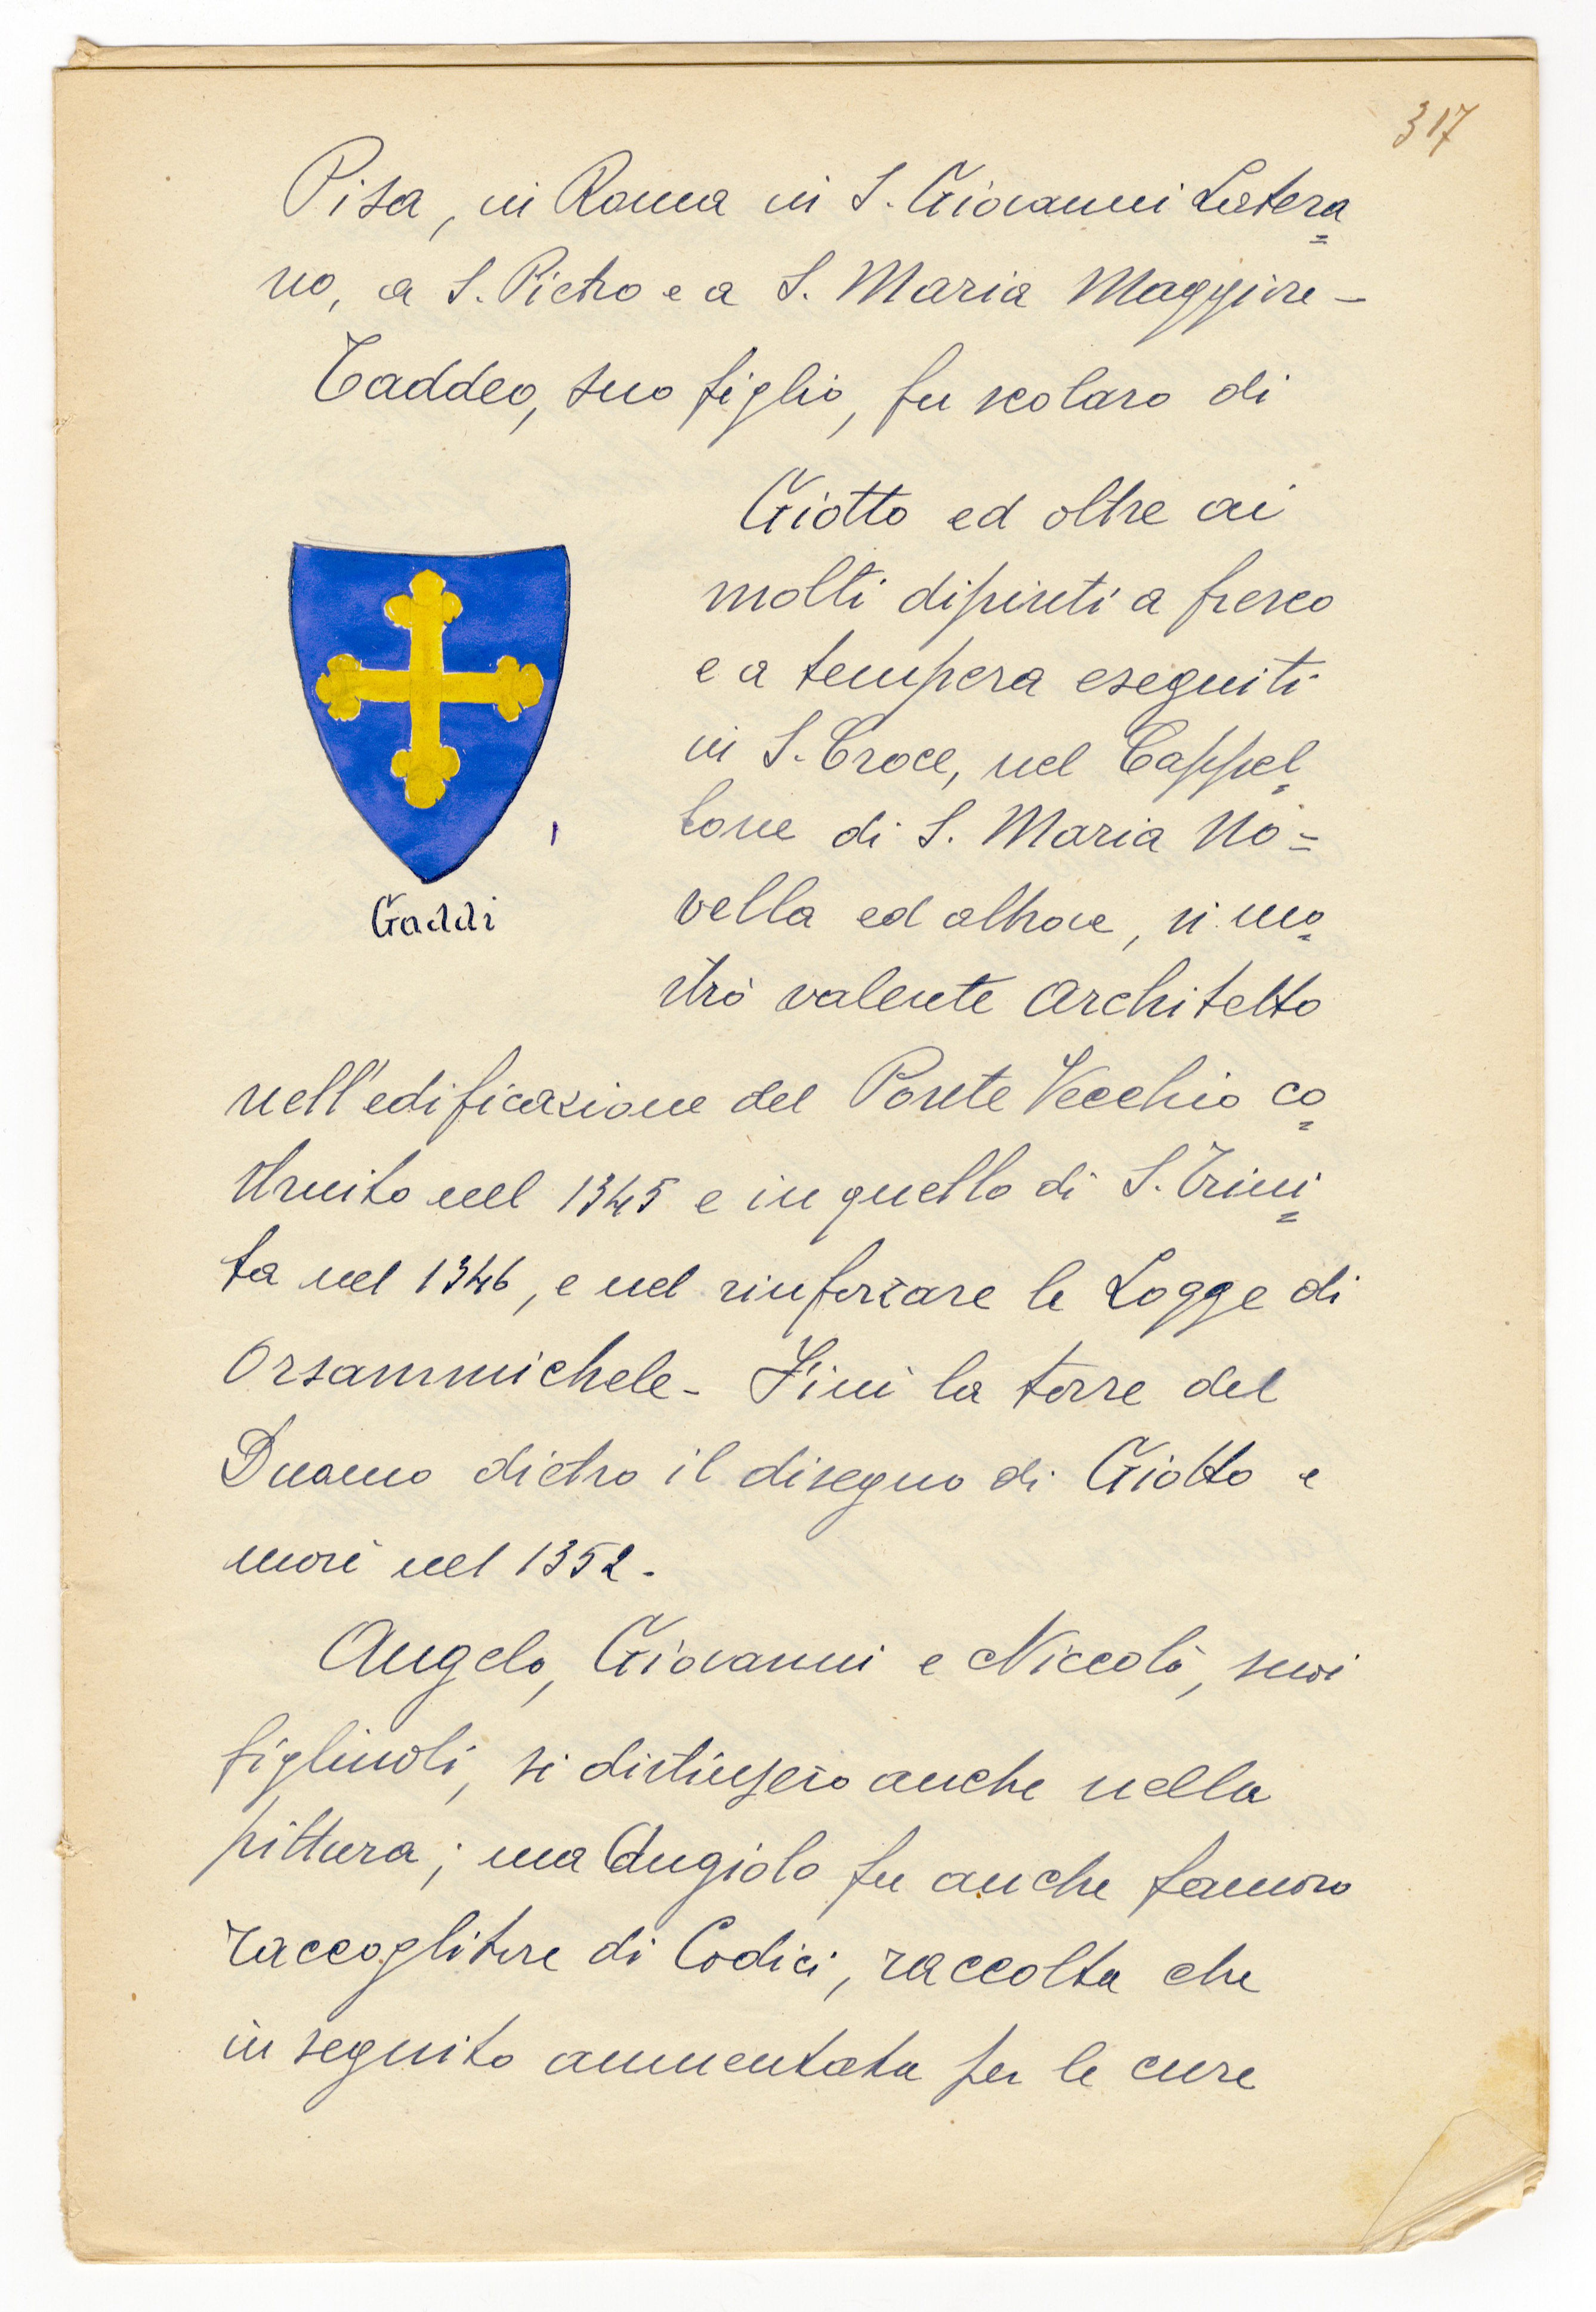 317
Pisa, in Roma in S. Giovanni Latera=
no, a S. Pietro e a S. Maria Maggiore –
Taddeo, suo figlio, fu scolaro di
Giotto ed oltre ai
molti dipinti a fresco
e a tempera eseguiti
in S. Croce, nel Cappel=
lone di S. Maria No=
vella ed altrove, si mo=
strò valente Architetto
Gaddi
nell'edificazione del Ponte Vecchio co=
struito nel 1345 e in quello di S. Trini=
ta nel 1346, e nel rinforzare le Logge di
Orsammichele - Finì la torre del
Duomo dietro il disegno di Giotto e
morì nel 1352 -
Angelo, Giovanni e Niccolò, suoi
figliuoli, si distinsero anche nella
pittura; ma Angiolo fu anche famoso
raccoglitore di Codici, raccolta che
in seguito aumentata per le cure